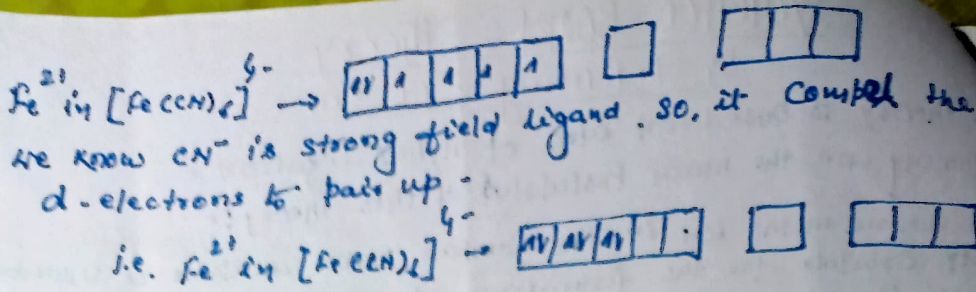 Fe²⁺ in [Fe(CN)₆]⁴⁻ → [1↓|1|1|1|1] [ ] [ | | ]
we know CN⁻ is strong field ligand. so, it compel the
d-electrons to pair up.
i.e. Fe²⁺ in [Fe(CN)₆]⁴⁻ → [1↓|1↓|1↓| | ] [ ] [ | | ]